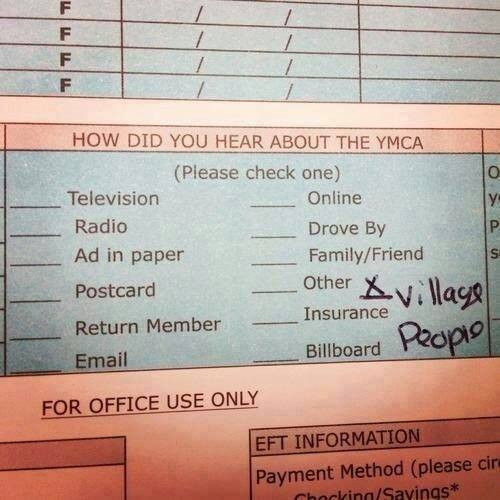 F / /
F / /
F / /
F / /
HOW DID YOU HEAR ABOUT THE YMCA
(Please check one)
Television Online
Radio Drove By
Ad in paper Family/Friend
Postcard Other X Village
Return Member Insurance People
Email Billboard
FOR OFFICE USE ONLY
EFT INFORMATION
Payment Method (please
Checking/Savings*